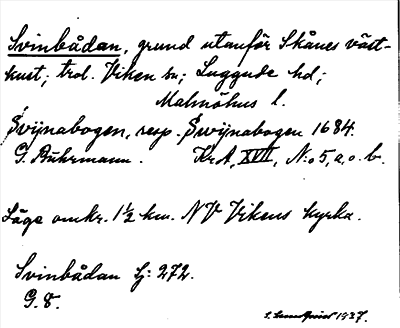 Svinbådan, grund utanför Skånes väst-
kust; trol. Viken sn; Luggude hd;
Malmöhus l.
Svijnabogen, resp. Swijnabogen 1684.
G. Buhrmann. KrA, XVII, N:o 5, a. o. b.
Läge omkr. 1½ km. NV Vikens kyrka.
Svinbådan Hj: 272.
G. 8.
S. Lundqvist 1937.